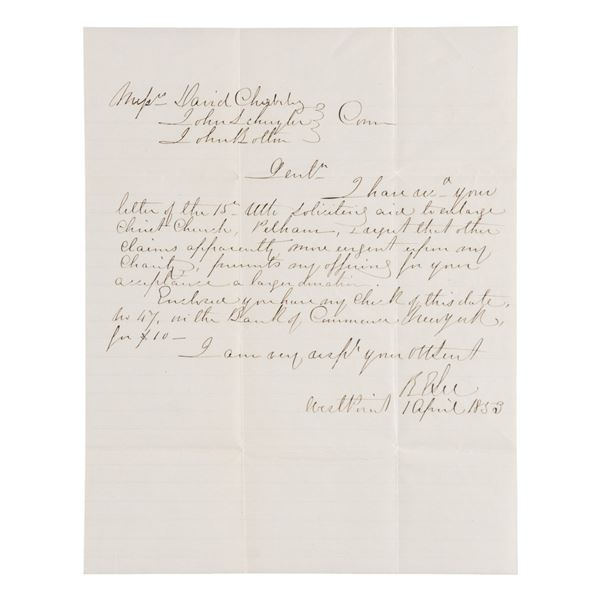 Messrs David Chesbr
John Schuyler } Com
John Bolton
Gentn
I have recd your
letter of the 15th Ulto soliciting aid to enlarge
Christ Church, Pelham, & regret that other
claims apparently more urgent upon my
Charity, prevents my offering for your
acceptance a larger donation.
Enclosed you have my check of this date,
No 47, on the Bank of Commerce New York,
for $10—
I am very respy your Obt Sert
R E Lee
West Point 1 April 1853